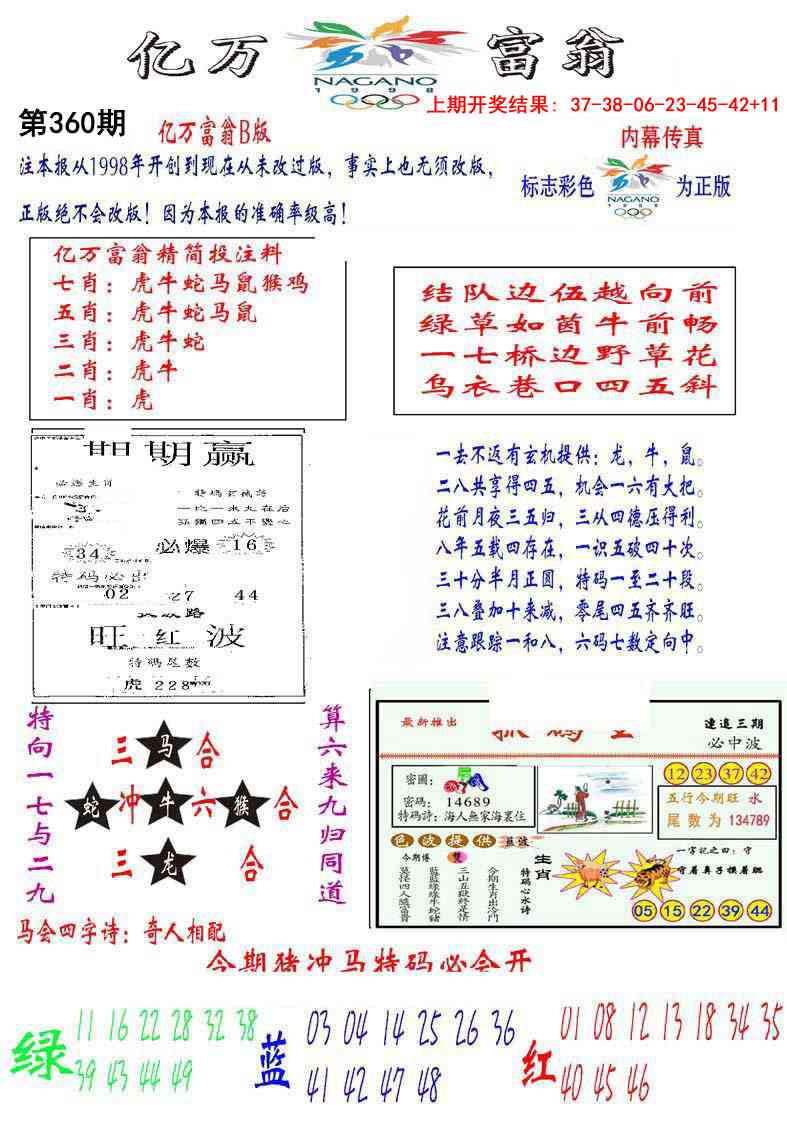 亿万富翁
NAGANO
1998
上期开奖结果: 37-38-06-23-45-42+11
第360期
亿万富翁B版
内幕传真
注本报从1998年开创到现在从未改过版，事实上也无须改版，
正版绝不会改版！因为本报的准确率级高！
标志彩色
NAGANO
1998
为正版
亿万富翁精简投注料
七肖：虎牛蛇马鼠猴鸡
五肖：虎牛蛇马鼠
三肖：虎牛蛇
二肖：虎牛
一肖：虎
结队边伍越向前
绿草如茵牛前畅
一七桥边野草花
乌衣巷口四五斜
期期赢
必爆
34
16
特码必出
02
27
44
旺红波
特码尾数
虎228
一去不返有玄机提供：龙，牛，鼠。
二八共享得四五，机会一六有大把。
花前月夜三五归，三从四德压得利。
八年五载四存在，一识五破四十次。
三十分半月正圆，特码一至二十段。
三八叠加十来减，零尾四五齐齐旺。
注意跟踪一和八，六码七数定向中。
特向一七与二九
三马合
蛇冲牛六猴合
三龙合
算六来九归同道
马会四字诗：奇人相配
最新推出
連追三期
必中波
密圖：
密碼： 14689
特碼詩：海人無家海裏住
12 23 37 42
五行今期旺 水
尾數为 134789
色波提供 藍波
今期博 雙
莫怪四人隨富貴
藍藍綠綠牛蛇豬
三山五嶽終是情
今期生肖出冷門
特碼心水诗
生肖
一字記之曰：守
守着鼻子摸着眼
05 15 22 39 44
今期猪冲马特码必会开
绿
11 16 22 28 32 38
39 43 44 49
蓝
03 04 14 25 26 36
41 42 47 48
红
01 08 12 13 18 34 35
40 45 46